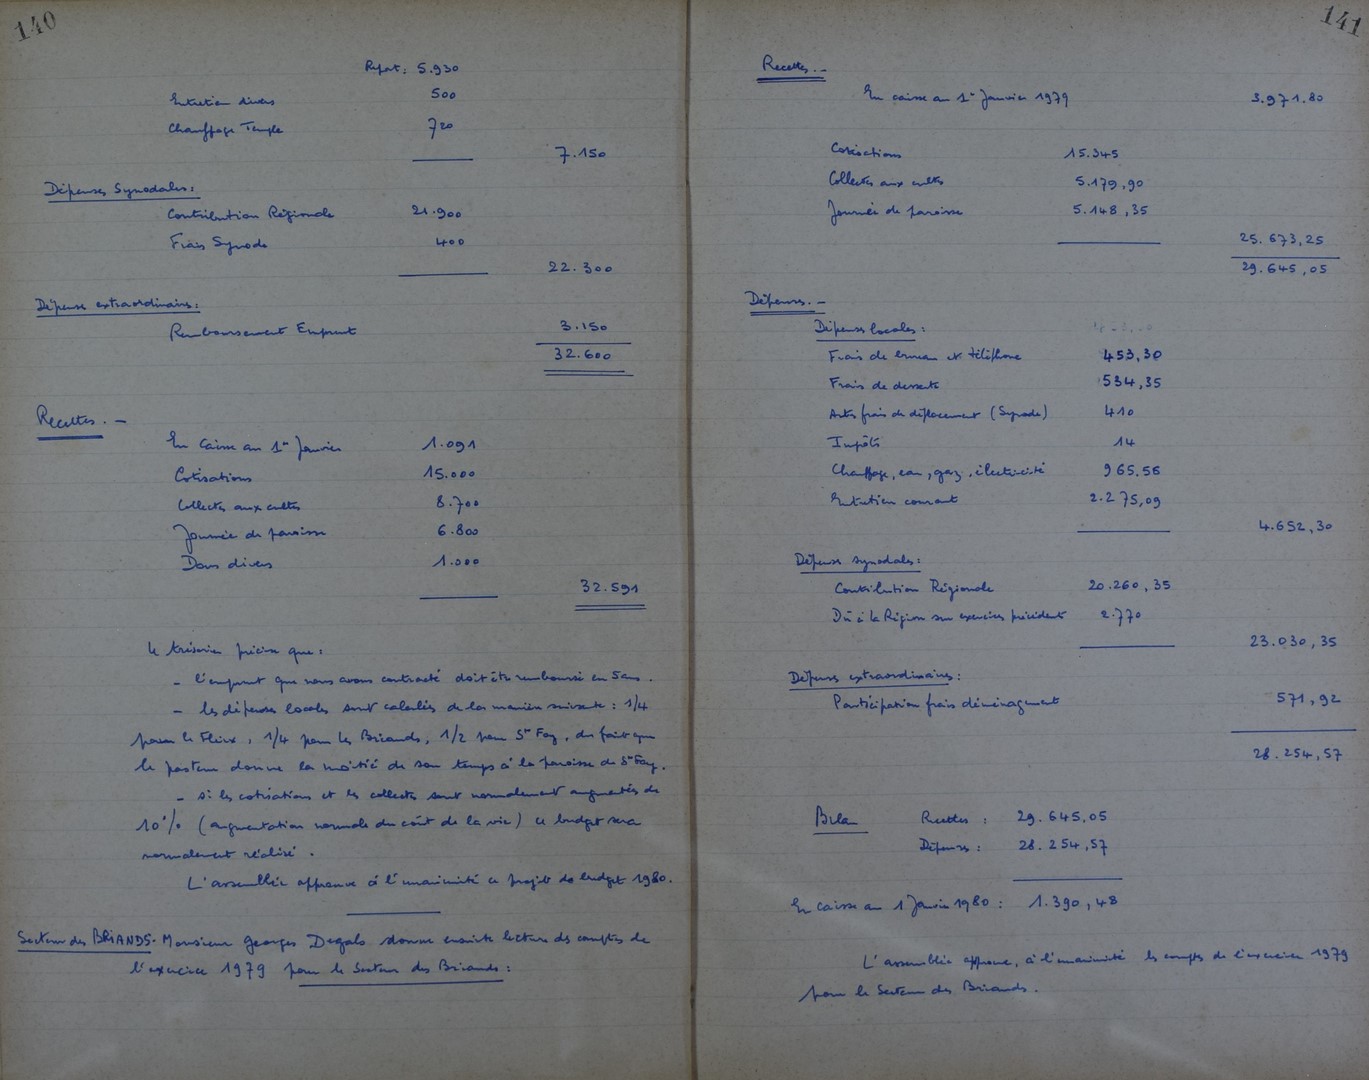 140
Report : 5.930
Entretien divers 500
Chauffage Temple 720
7.150
Dépenses Synodales :
Contribution Régionale 21.900
Frais Synode 400
22.300
Dépense extraordinaire :
Remboursement Emprunt 3.150
32.600
Recettes. -
En Caisse au 1er Janvier 1.091
Cotisations 15.000
Collectes aux cultes 8.700
Journée de paroisse 6.800
Dons divers 1.000
32.591
Le trésorier précise que :
- l'emprunt que nous avons contracté doit être remboursé en 5 ans.
- les dépenses locales sont calculées de la manière suivante : 1/4
pour le Fleix, 1/4 pour les Briands, 1/2 pour Ste Foy, du fait que
le pasteur donne la moitié de son temps à la paroisse de Ste Foy.
- si les cotisations et les collectes sont normalement augmentés de
10% (augmentation normale du coût de la vie) ce budget sera
normalement réalisé.
L'assemblée approuve à l'unanimité ce projet de budget 1980.
Secteur des BRIANDS - Monsieur Georges Degals donne ensuite lecture des comptes de
l'exercice 1979 pour le Secteur des Briands :
141
Recettes. -
En caisse au 1er Janvier 1979 3.971.80
Cotisations 15.345
Collectes aux cultes 5.179,90
Journée de paroisse 5.148,35
25.673,25
29.645,05
Dépenses. -
Dépenses locales :
Frais de bureau et téléphone 453,30
Frais de desserte 534,35
Autres frais de déplacement (Synode) 410
Impôts 14
Chauffage, eau, gaz, électricité 965.56
Entretien courant 2.275,09
4.652,30
Dépenses synodales :
Contribution Régionale 20.260,35
Dû à la Région sur exercice précédent 2.770
23.030,35
Dépenses extraordinaires :
Participation frais déménagement 571,92
28.254,57
Bilan Recettes : 29.645,05
Dépenses : 28.254,57
En caisse au 1 Janvier 1980 : 1.390,48
L'assemblée approuve, à l'unanimité les comptes de l'exercice 1979
pour le Secteur des Briands.